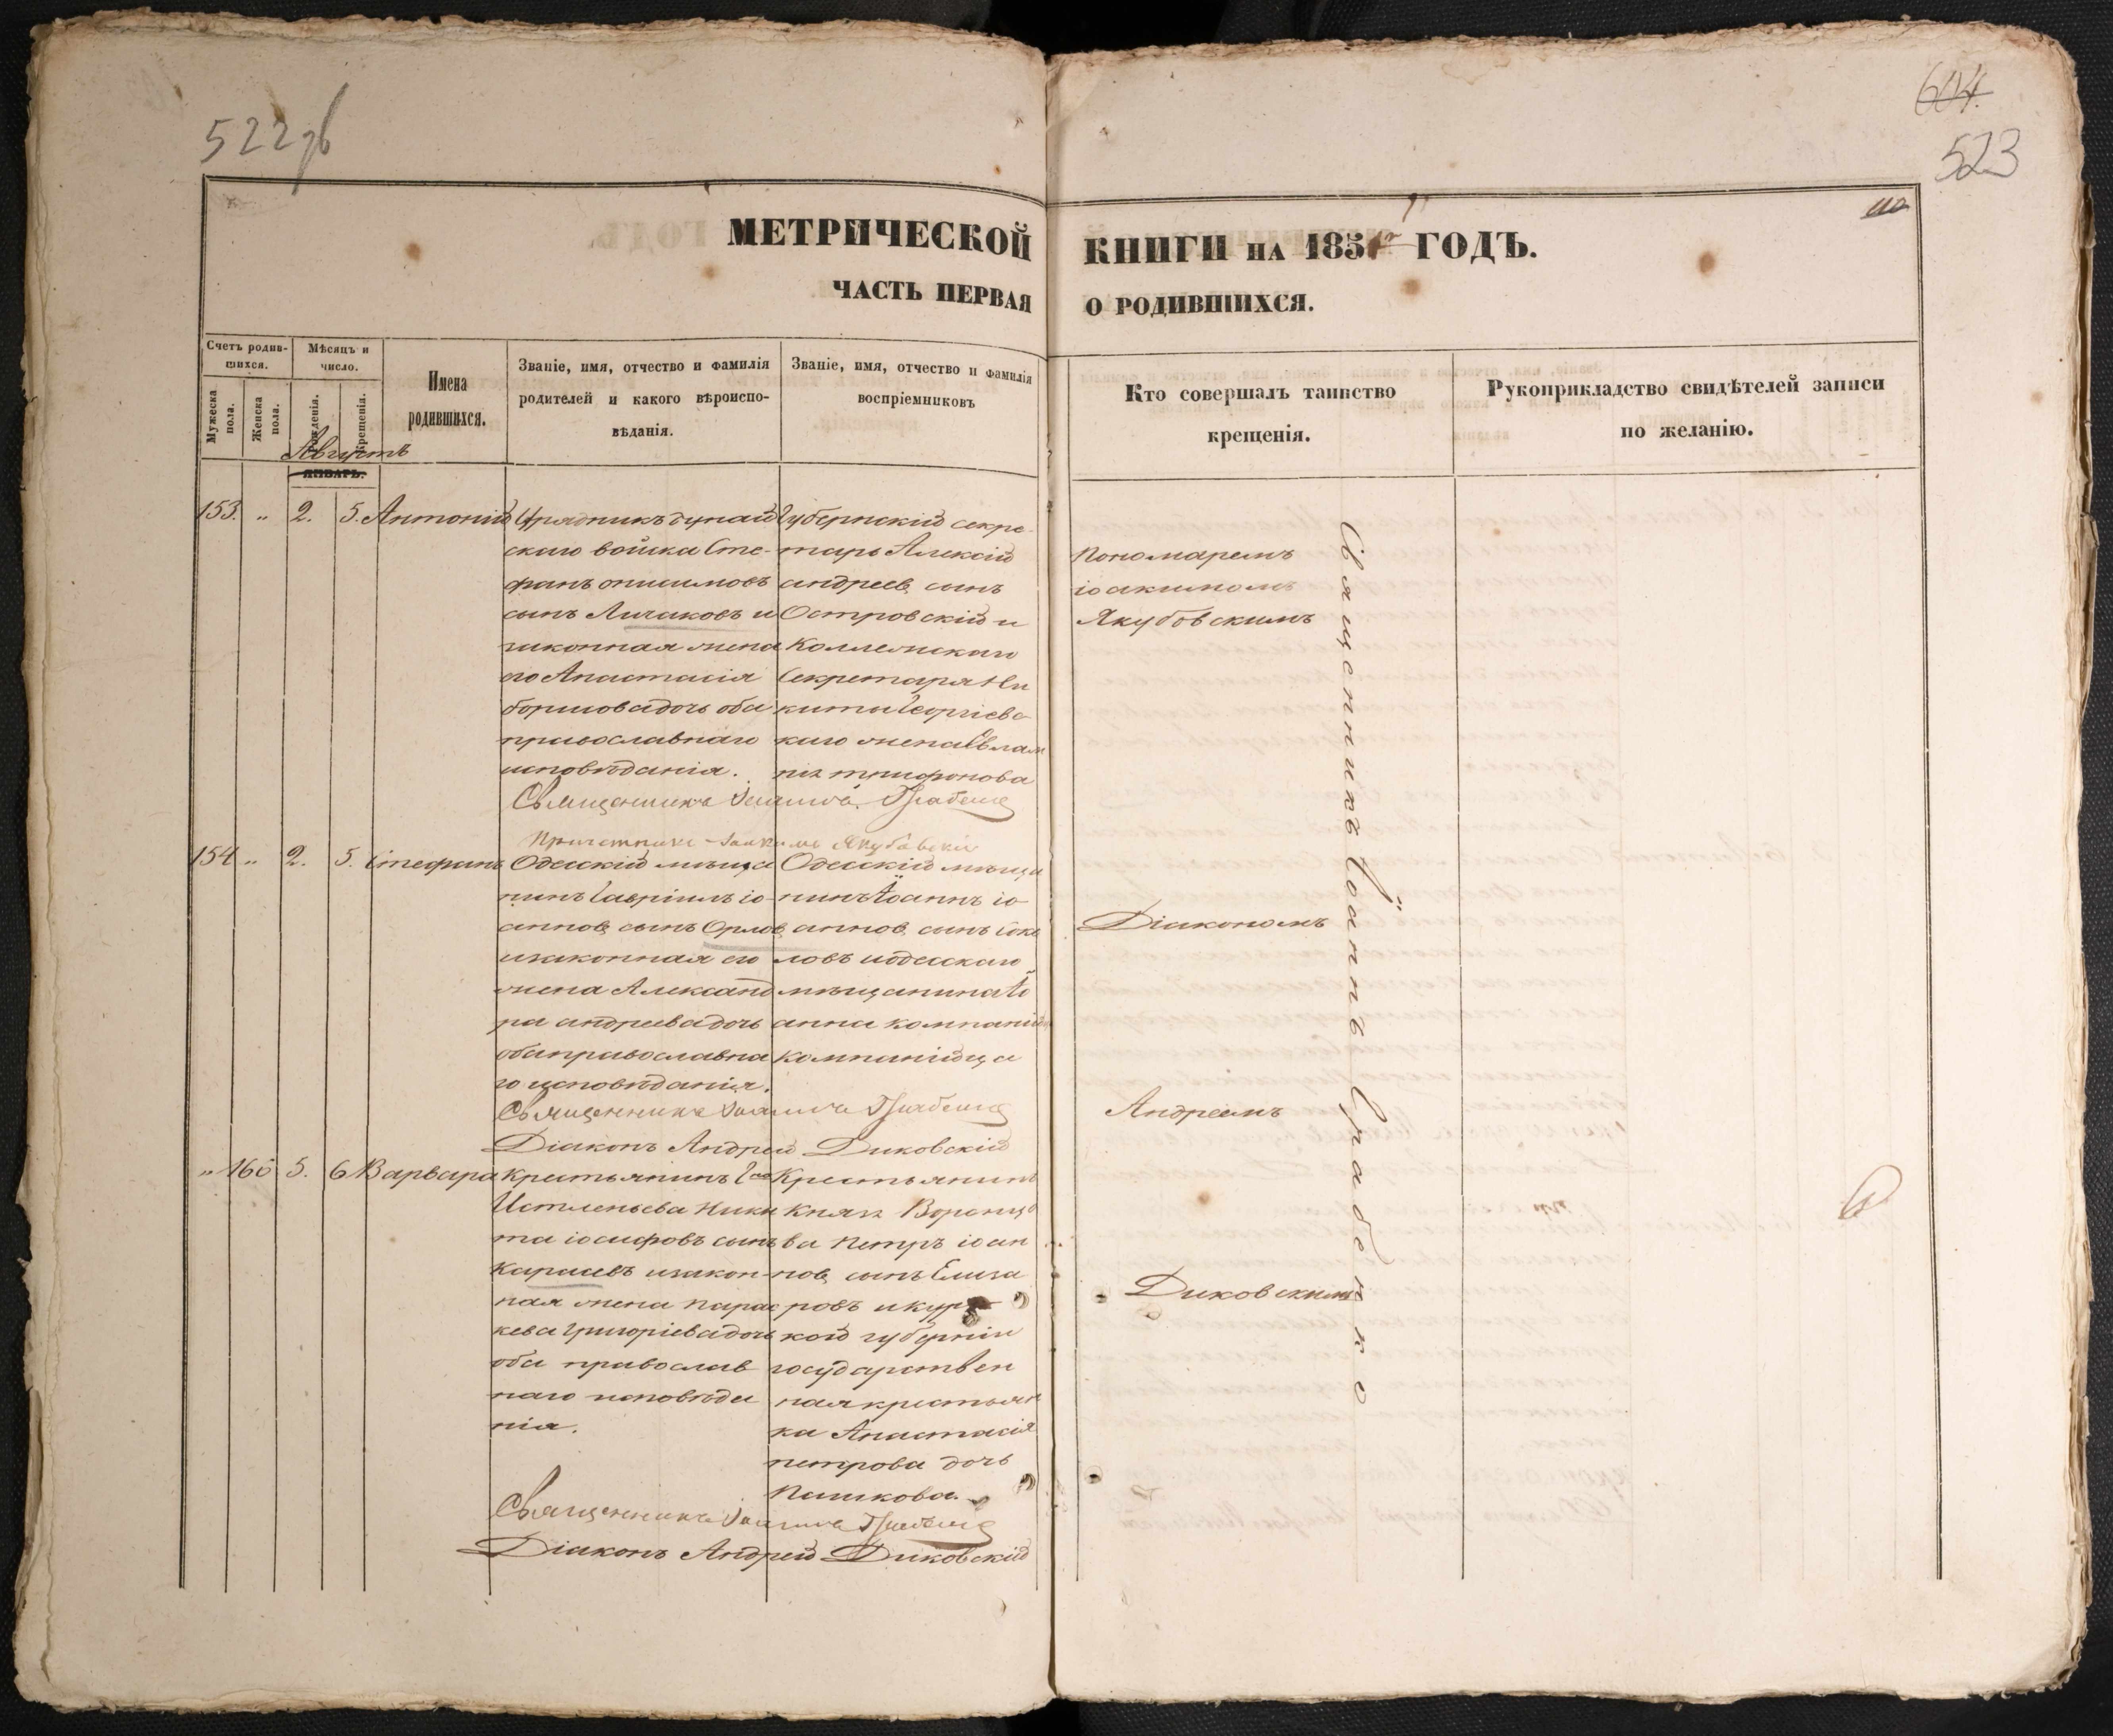 522 об
604.
523
МЕТРИЧЕСКОЙ
ЧАСТЬ ПЕРВАЯ
КНИГИ НА 185 ГОДЪ.
О РОДИВШИХСЯ.
Счетъ родив-
шихся.
Мужеска
пола.
Женска
пола.
Мѣсяцъ и
число.
рожденія.
крещенія.
Имена
родившихся.
Званіе, имя, отчество и фамилія
родителей и какого вѣроиспо-
вѣданія.
Званіе, имя, отчество и фамилія
воспріемниковъ
Кто совершалъ таинство
крещенія.
Рукоприкладство свидѣтелей записи
по желанію.
Августъ
ЯНВАРЬ.
153. " 2. 5. Антоній
Урядникъ дунай
скаго войска Сте-
фанъ онисимовъ
сынъ Личаковъ и
законная жена
его Анастасія
борисова дочь оба
православнаго
исповѣданія.
Губернскій секре
тарь Алексій
андреев сынъ
Островскій и
Коллежскаго
Секретаря Ни
киты Георгіевс
каго жена Евлам
пія трифонова
Священникъ Іоаннъ Грабенко
Причетникъ Іоакимъ Якубовскій
Пономаремъ
іоакимомъ
Якубовскимъ
154 " 2. 5. Стефанъ
Одесскій мѣща
нинъ Гавріилъ іо
аннов сынъ Орлов
изаконная его
жена Александ
ра андреева дочь
оба православна
го исповѣданія.
Одесскій мѣща
нинъ Іоаннъ іо
аннов сынъ Соко
ловъ иодесскаго
мѣщанина Іо
анна компаній
компанійца
Священникъ Іоаннъ Грабенко
Діаконъ Андрей Диковскій
Діакономъ
Андреемъ
Диковскимъ
" 160 5. 6 Варвара
Крестьянинъ
Истленьева Ники
та іосифовъ сынъ
Карасевъ изакон-
ная жена парас
кева григоріева дочь
оба православ
наго исповѣда
нія.
Крестьянинъ
Князя Воронцо
ва Петръ іоан
нов сынъ Елиза
ровъ и курс
кой губерніи
государствен
ная крестьян
ка Анастасія
петрова дочь
Пашкова.
Священникъ Іоаннъ Грабенко
Діаконъ Андрей Диковскій
Священникъ Іоаннъ Грабенко